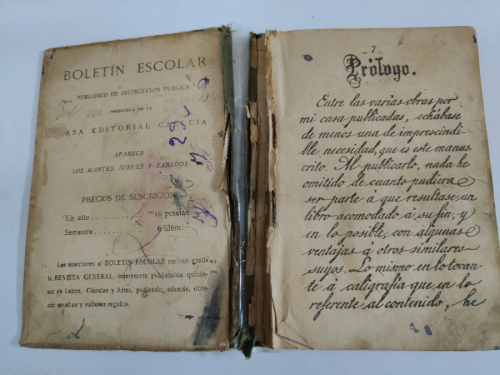 BOLETÍN ESCOLAR
PERIÓDICO DE INSTRUCCIÓN PÚBLICA
PROPIEDAD DE LA
ASA EDITORIAL CALLEJA
APARECE
LOS MARTES, JUEVES Y SÁBADOS
PRECIOS DE SUSCRIPCIÓN
Un año 10 pesetas
Semestre 6 ídem.
Los suscritores al BOLETÍN ESCOLAR reciben gratis
la REVISTA GENERAL, interesante publicación quince-
nal de Letras, Ciencias y Artes, pudiendo, además, obte-
ner amplios y valiosos regalos.
7
Prólogo.
Entre las varias obras por
mi casa publicadas, echábase
de menos una de imprescindi-
ble necesidad, que es este manus-
crito. Al publicarlo, nada he
omitido de cuanto pudiera
ser parte á que resultase un
libro acomodado á su fin, y
en lo posible, con algunas
ventajas á otros similares
suyos. Lo mismo en lo tocan-
te á caligrafía que en lo
referente al contenido, he